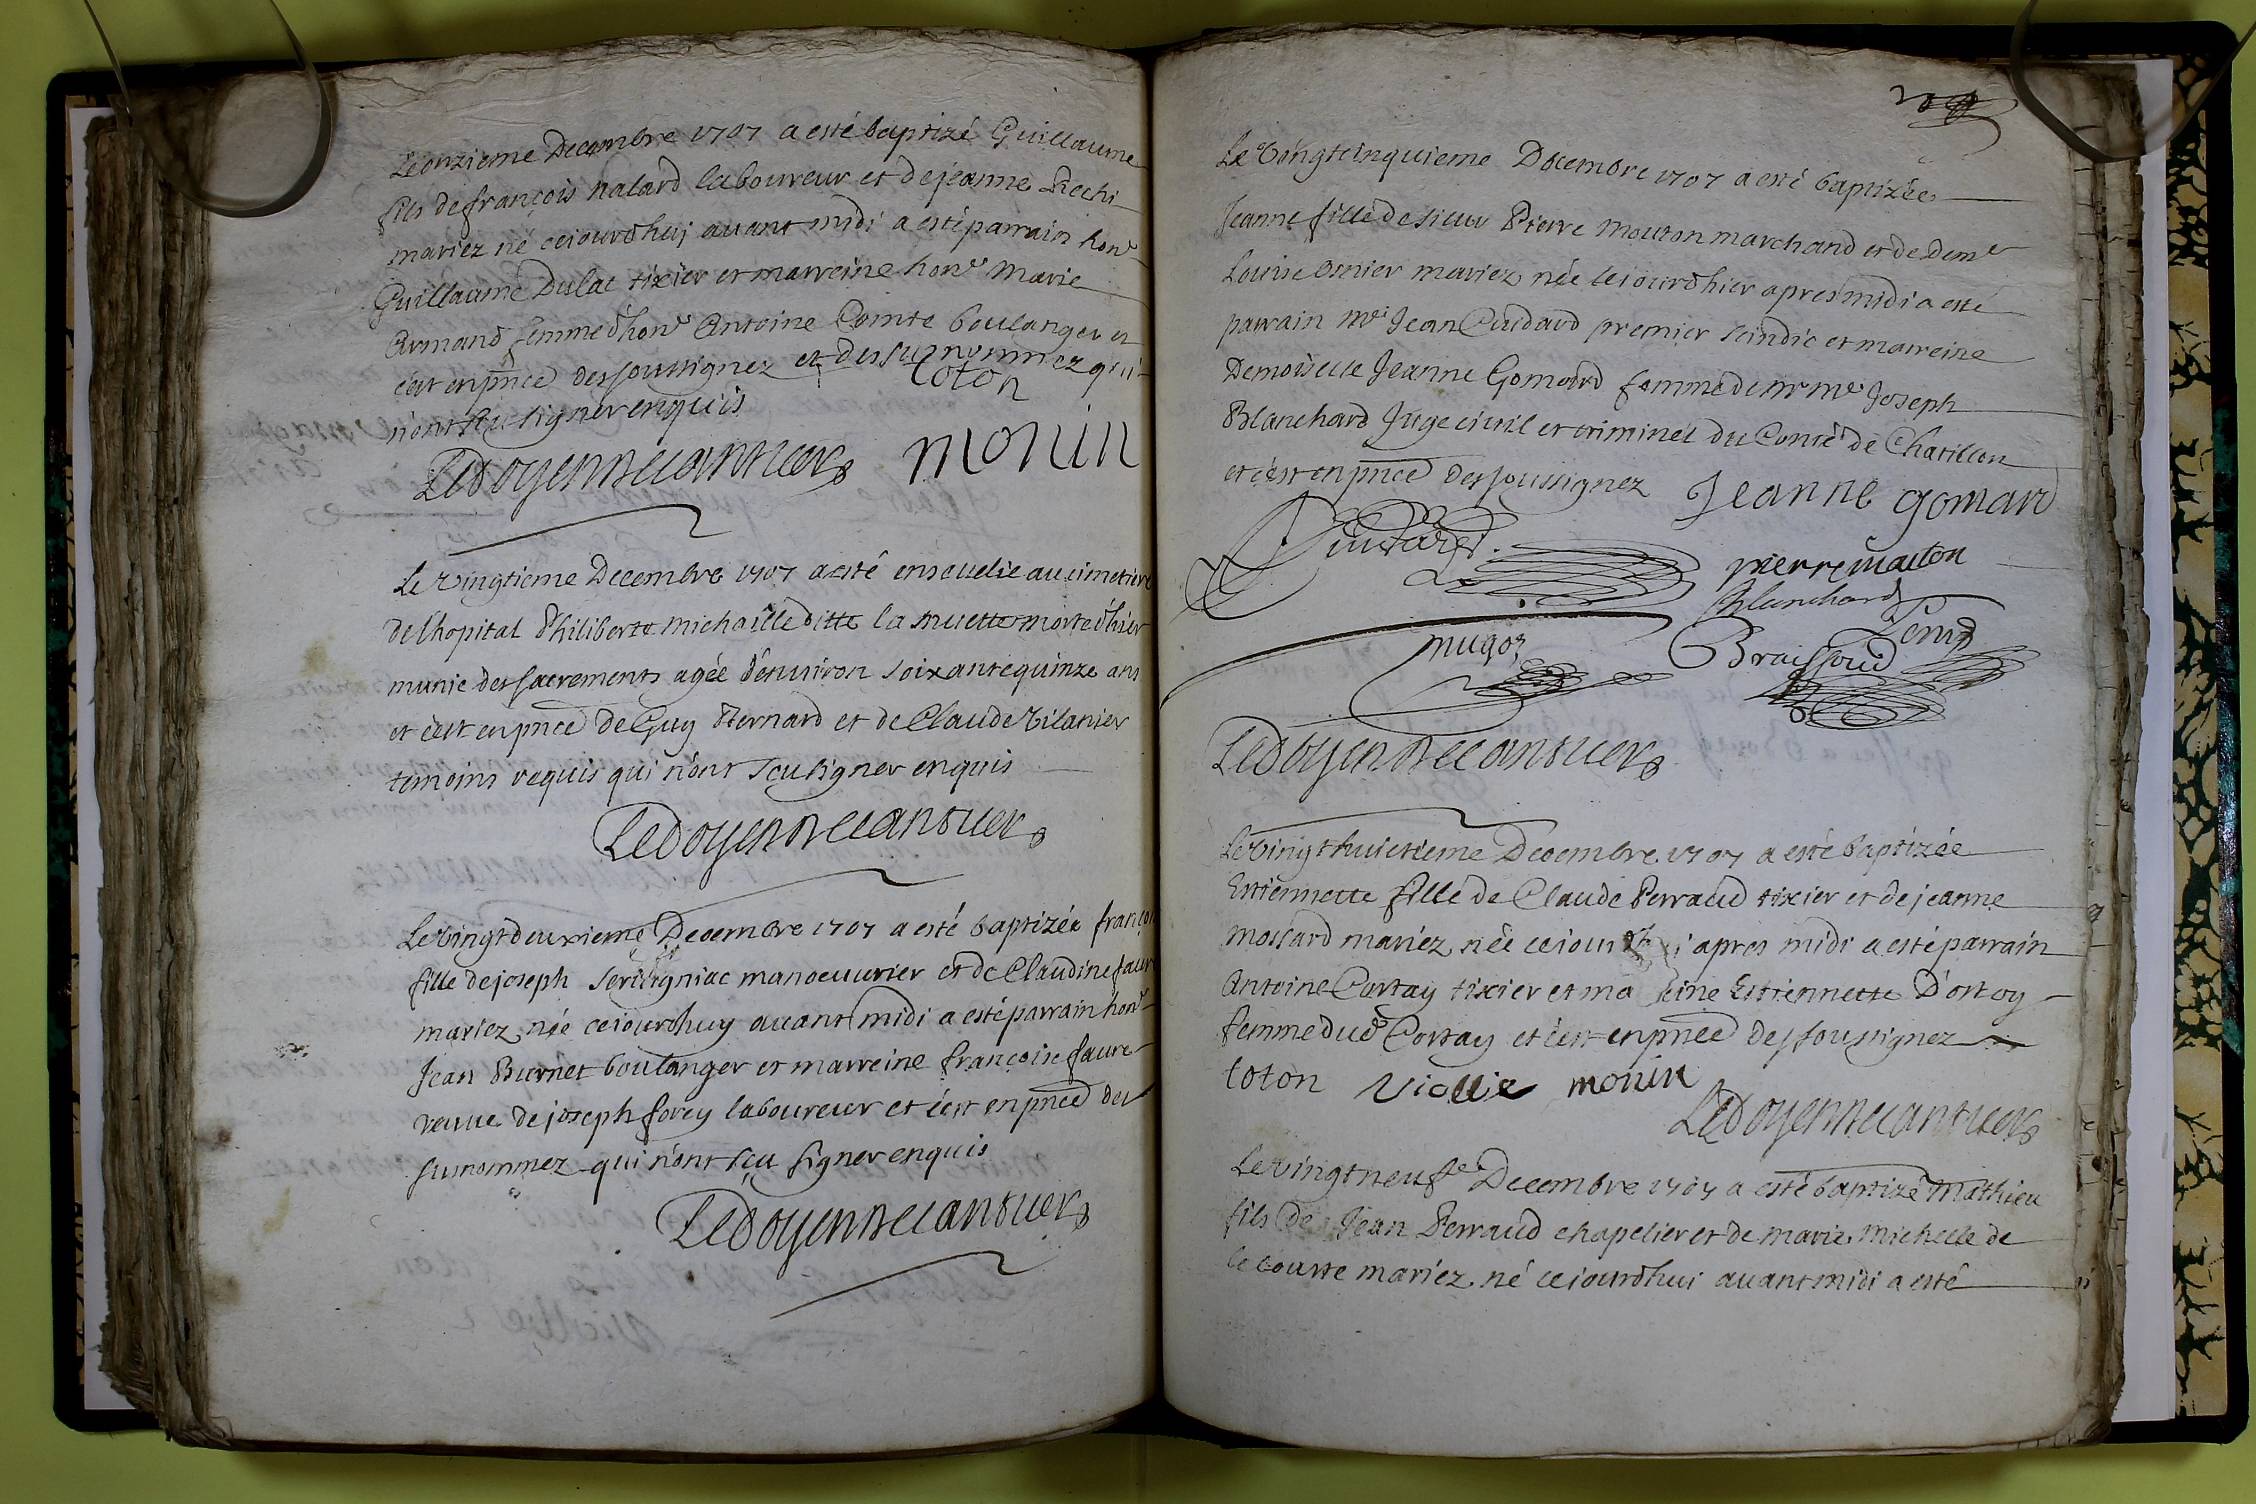 Le onzieme Decembre 1707 a esté baptizé Guillaume
fils de françois nalard laboureur et de jeanne Rechi
mariez né cejourdhuj avant midi a esté parrain hon.e
Guillaume Dulac tixier et marreine hon.e Marie
Armand femme d'hon.e Antoine Comte boulanger et
c'est en pnce des soussignez et des susnommez qui
n'ont sçu signer enquis coton
Ledoyen monin
Le vingtieme Decembre 1707 a esté ensevelie au cimetiere
de l'hopital Philiberte Michaille ditte la muette morte d'hier
munie des sacrements agée d'environ soixante quinze ans
et c'est en pnce de Guy Bernard et de Claude Vilanier
temoins requis qui n'ont sçu signer enquis
Ledoyen
Le vingt deuxieme Decembre 1707 a esté baptizée françoi
fille de joseph manoeuvrier et de Claudine faure
mariez née cejourdhuy avant midi a esté parrain hon.e
Jean Burnet boulanger et marreine françoise faure
veuve de joseph forey laboureur et c'est en pnce des
susnommez qui n'ont sçu signer enquis
Ledoyen
Le vingt cinquieme Decembre 1707 a esté baptizée
Jeanne fille de sieur Pierre Mouton marchand et de Dem.e
Louise mariez née le jourd'hier apres midi a esté
parrain Mr Jean Cuidard premier sindic et marreine
Demoiselle Jeanne Gomard femme de Mr Me Joseph
Blanchard Juge civil et criminel du Comté de Chatillon
et c'est en pnce des soussignez Jeanne gomard
Cuidard
pierre mouton
Blanchard
nugoz Braissoud
Ledoyen
Le vingt huictieme Decembre 1707 a esté baptizée
Estiennette fille de Claude Perraud tixier et de jeanne
Mossard mariez née cejourdhui apres midi a esté parrain
Antoine Cortay tixier et mareine Estiennette D'ortoy
femme dud Cortay et c'est en pnce des soussignez
coton viollie monin
Ledoyen
Le vingt neufe Decembre 1707 a esté baptizé Mathieu
fils de Jean Perraud chapelier et de Marie Michelle de
la courre mariez né cejourdhui avant midi a esté